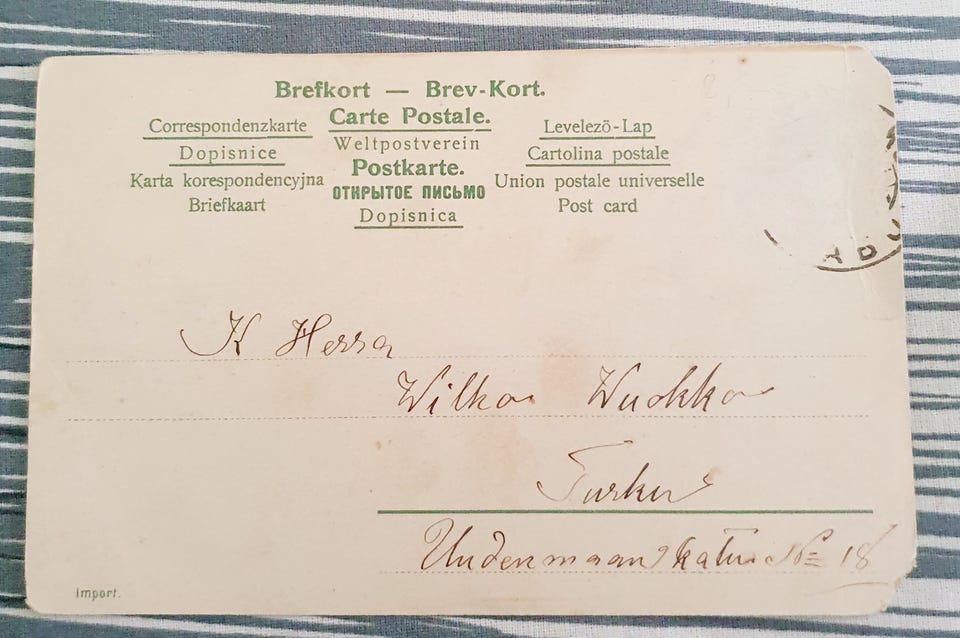 Brefkort — Brev-Kort.
Correspondenzkarte
Dopisnice
Karta korespondencyjna
Briefkaart
Carte Postale.
Weltpostverein
Postkarte.
ОТКРЫТОЕ ПИСЬМО
Dopisnica
Levelező-Lap
Cartolina postale
Union postale universelle
Post card
K Herra
Wilho Wuokko
Turku
Uudenmaankatu № 18
Import.